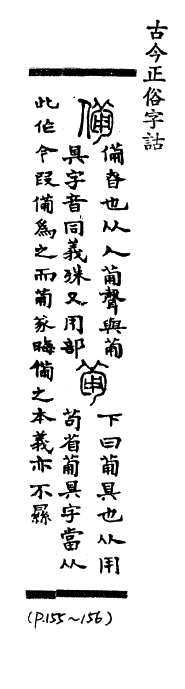 古今正俗字詁
備 備眘也从人葡聲與葡
具字音同義殊又用部
葡 下曰葡具也从用
苟省葡具字當从
此作今叚備爲之而葡篆晦備之本義亦不㬎
(P.155~156)